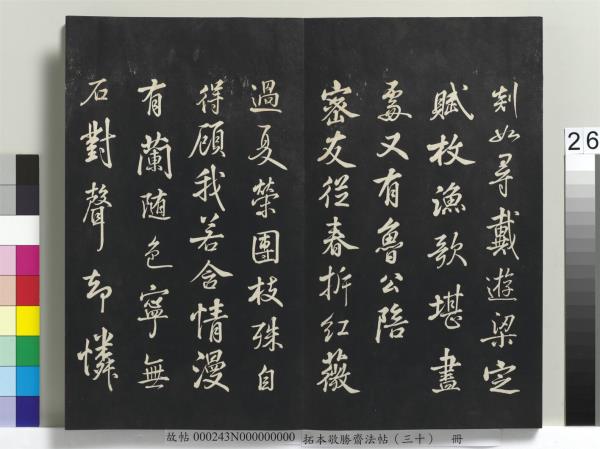 剡如尋戴遊梁定
賦枚漁歌堪畫
處又有魯公陪
密友從春拆紅薇
過夏榮團枝殊自
得顧我若含情漫
有蘭随色寧無
石對聲却憐
26
故帖 000243N000000000 拓本敬勝齋法帖（三十） 冊